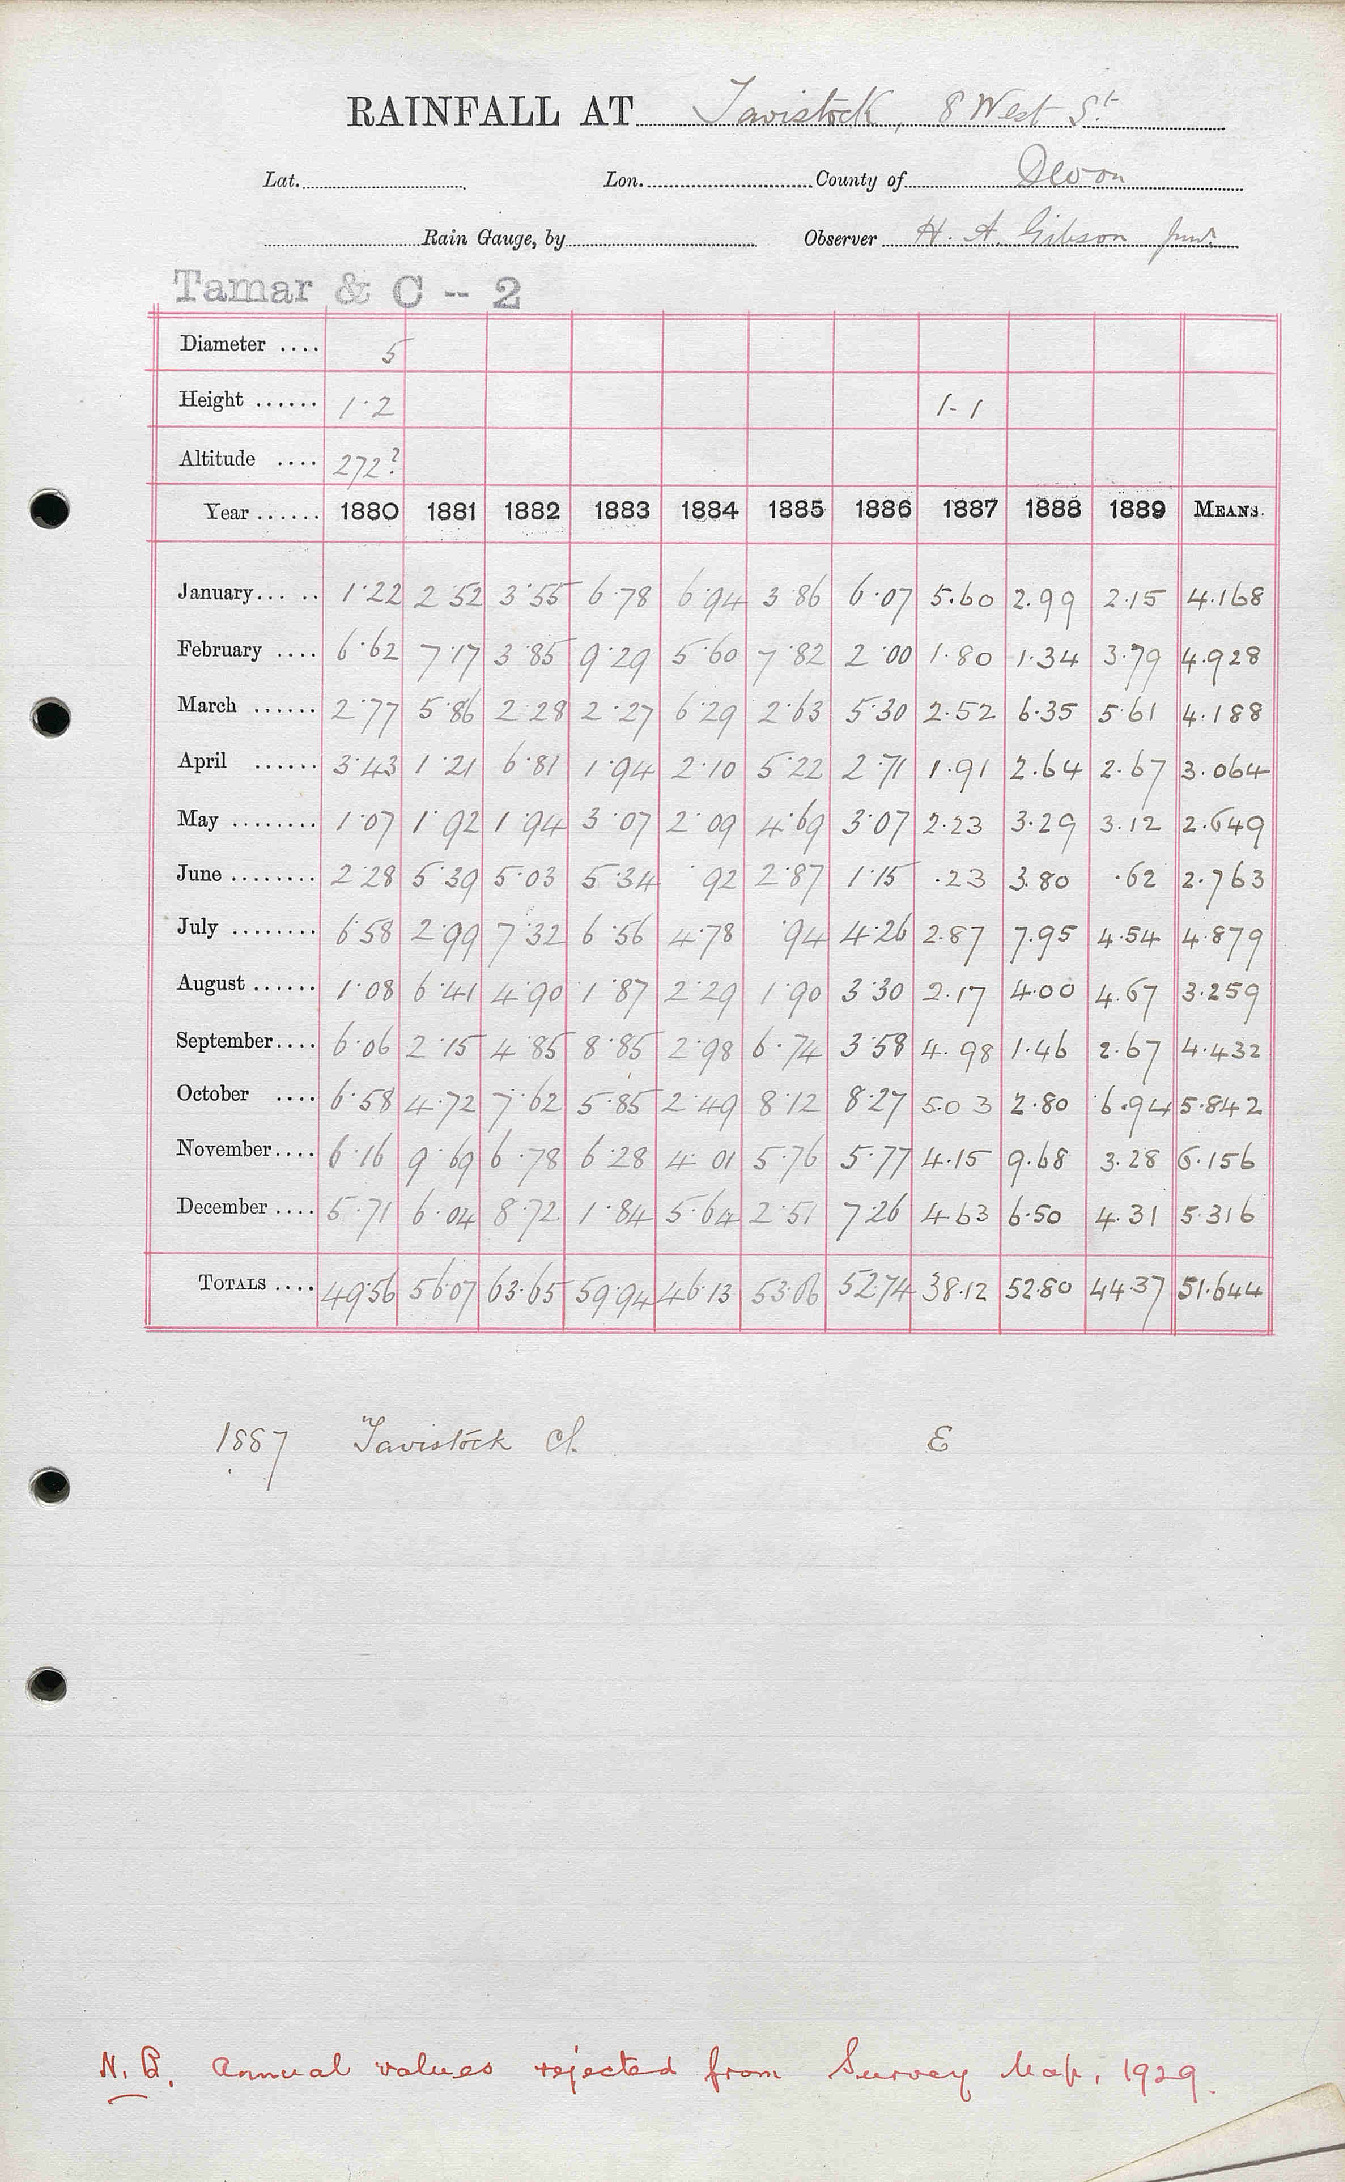 RAINFALL AT Tavistock, 8 West St
Lat. Lon. County of Devon
Rain Gauge, by Observer H. A. Gibson Junr.
Tamar & C -- 2
Diameter .... 5
Height ...... 1·2 1-1
Altitude .... 272?
Year ...... 1880 1881 1882 1883 1884 1885 1886 1887 1888 1889 MEANS.
January... .. 1·22 2·52 3·55 6·78 6·94 3·86 6·07 5.60 2.99 2.15 4.168
February .... 6·62 7·17 3·85 9·29 5·60 7·82 2·00 1.80 1.34 3.79 4.928
March ...... 2·77 5·86 2·28 2·27 6·29 2·63 5·30 2.52 6.35 5.61 4.188
April ...... 3·43 1·21 6·81 1·94 2·10 5·22 2·71 1.91 2.64 2.67 3.064
May ........ 1·07 1·92 1·94 3·07 2·09 4·69 3·07 2.23 3.29 3.12 2.649
June ........ 2·28 5·39 5·03 5·34 ·92 2·87 1·15 .23 3.80 .62 2.763
July ........ 6·58 2·99 7·32 6·56 4·78 ·94 4·26 2.87 7.95 4.54 4.879
August ...... 1·08 6·41 4·90 1·87 2·29 1·90 3·30 2.17 4.00 4.67 3.259
September.... 6·06 2·15 4·85 8·85 2·98 6·74 3·58 4.98 1.46 2.67 4.432
October .... 6·58 4·72 7·62 5·85 2·49 8·12 8·27 5.03 2.80 6.94 5.842
November.... 6·16 9·69 6·78 6·28 4·01 5·76 5·77 4.15 9.68 3.28 6.156
December .... 5·71 6·04 8·72 1·84 5·64 2·51 7·26 4.63 6.50 4.31 5.316
TOTALS .... 49·56 56·07 63·65 59·94 46·13 53·06 52·74 38.12 52.80 44.37 51.644
1887 Tavistock cl. E
N.B. Annual values rejected from Survey Map, 1929.